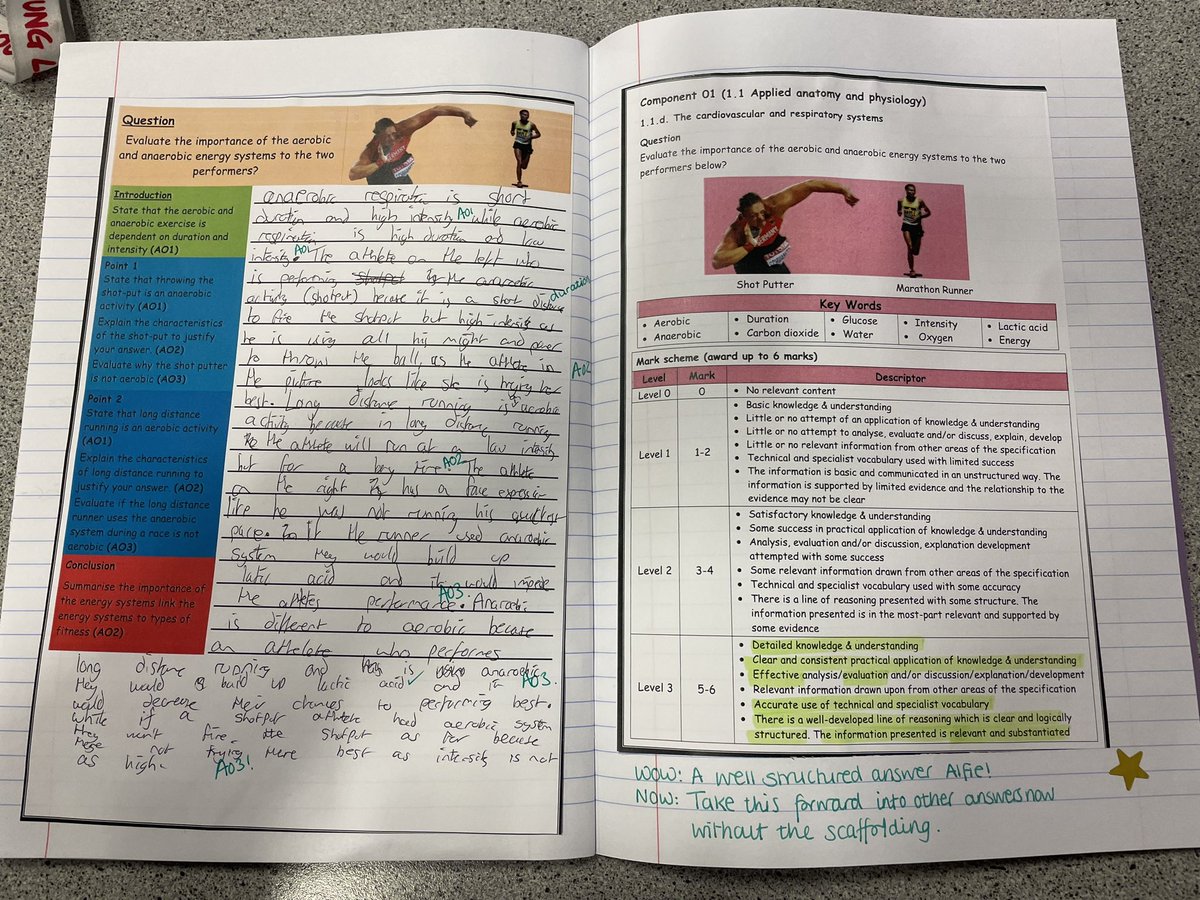 UNG L
Question
Evaluate the importance of the aerobic
and anaerobic energy systems to the two
performers?
Introduction
State that the aerobic and
anaerobic exercise is
dependent on duration and
intensity (AO1)
Point 1
State that throwing the
shot-put is an anaerobic
activity (AO1)
Explain the characteristics
of the shot-put to justify
your answer. (AO2)
Evaluate why the shot putter
is not aerobic (AO3)
Point 2
State that long distance
running is an aerobic activity
(AO1)
Explain the characteristics
of long distance running to
justify your answer. (AO2)
Evaluate if the long distance
runner uses the anaerobic
system during a race is not
aerobic (AO3)
Conclusion
Summarise the importance of
the energy systems link the
energy systems to types of
fitness (AO2)
anaerobic respiration is short
duration and high intensity AO1 while aerobic
respiration is high duration and low
intensity. AO1 The athlete on the left who
is performing shotput the anaerobic
activity (shotput) because it is a short distance duration
to fire the shotput but high intensity as
he is using all his might and power
to throws the ball, as the athlete in AO2
the picture looks like she is trying her
best. Long distance running is aerobic
activity because in long distance running
the athlete will run at a low intensity
but for a long time. AO2 The athlete
on the right has a face expression
like he was not running his quickest
pace. If the runner used anaerobic
system they would build up
latic acid and it would
the athletes performance. AO3. Anaerobic
is different to aerobic because
an athelete who performes
long distance running and is anaerobic
they would build up lactic acid ✓ and it AO3
would decrease their chances to performing best.
while if a shotput athlete had aerobic system
they won't fire the shotput as far because
there not trying there best as intensity is not
as high. AO3!
Component 01 (1.1 Applied anatomy and physiology)
1.1.d. The cardiovascular and respiratory systems
Question
Evaluate the importance of the aerobic and anaerobic energy systems to the two
performers below?
Shot Putter
Marathon Runner
Key Words
• Aerobic • Duration • Glucose • Intensity • Lactic acid
• Anaerobic • Carbon dioxide • Water • Oxygen • Energy
Mark scheme (award up to 6 marks)
Level Mark Descriptor
Level 0 0 • No relevant content
Level 1 1-2 • Basic knowledge & understanding
• Little or no attempt of an application of knowledge & understanding
• Little or no attempt to analyse, evaluate and/or discuss, explain, develop
• Little or no relevant information from other areas of the specification
• Technical and specialist vocabulary used with limited success
• The information is basic and communicated in an unstructured way. The
information is supported by limited evidence and the relationship to the
evidence may not be clear
Level 2 3-4 • Satisfactory knowledge & understanding
• Some success in practical application of knowledge & understanding
• Analysis, evaluation and/or discussion, explanation development
attempted with some success
• Some relevant information drawn from other areas of the specification
• Technical and specialist vocabulary used with some accuracy
• There is a line of reasoning presented with some structure. The
information presented is in the most-part relevant and supported by
some evidence
Level 3 5-6 • Detailed knowledge & understanding
• Clear and consistent practical application of knowledge & understanding
• Effective analysis/evaluation and/or discussion/explanation/development
• Relevant information drawn upon from other areas of the specification
• Accurate use of technical and specialist vocabulary
• There is a well-developed line of reasoning which is clear and logically
structured. The information presented is relevant and substantiated
WOW: A well structured answer Alfie!
NOW: Take this forward into other answers now
without the scaffolding.